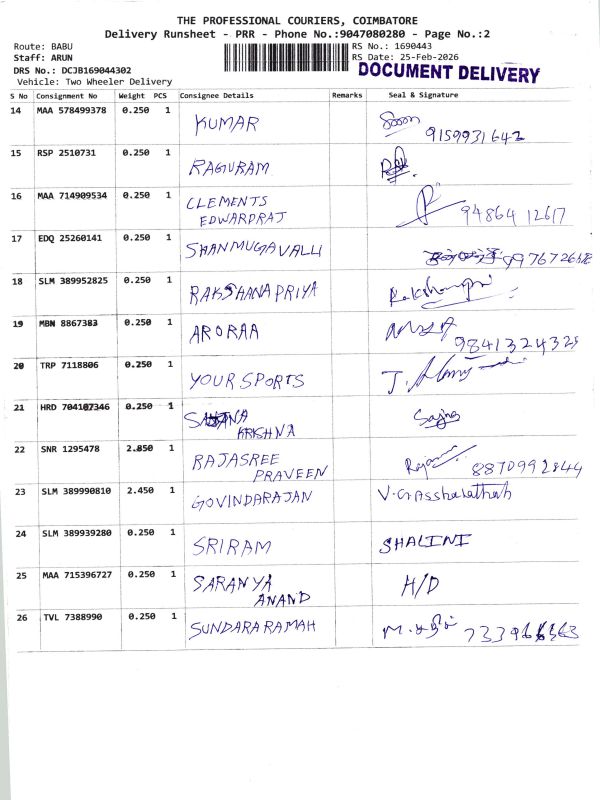 THE PROFESSIONAL COURIERS, COIMBATORE
Delivery Runsheet - PRR - Phone No.:9047080280 - Page No.:2
Route: BABU
RS No.: 1690443
Staff: ARUN
RS Date: 25-Feb-2026
DRS No.: DCJB169044302
DOCUMENT DELIVERY
Vehicle: Two Wheeler Delivery
S No Consignment No Weight PCS Consignee Details Remarks Seal & Signature
14 MAA 578499378 0.250 1 KUMAR
9159931642
15 RSP 2510731 0.250 1 RAGURAM
16 MAA 714909534 0.250 1 CLEMENTS
EDWARDRAJ 9486412617
17 EDQ 25260141 0.250 1 SHANMUGAVALLI
18 SLM 389952825 0.250 1 RAKSHANAPRIYA
19 MBN 8867383 0.250 1 ARORAA
9841324325
20 TRP 7118806 0.250 1 YOUR SPORTS
21 HRD 704107346 0.250 1
KRISHNA
22 SNR 1295478 2.850 1 RAJASREE
PRAVEEN 8870992844
23 SLM 389990810 2.450 1 GOVINDARAJAN
24 SLM 389939280 0.250 1 SRIRAM SHALINI
25 MAA 715396727 0.250 1 SARANYA H/D
ANAND
26 TVL 7388990 0.250 1 SUNDARARAMAH